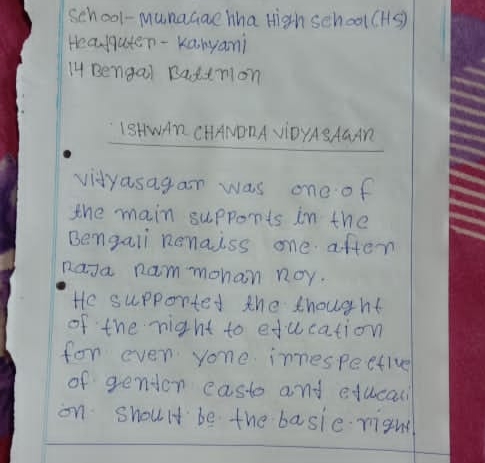 School- Munagachha High School (HS)
Headquter - Kalyani
14 Bengal Battrlion
ISHWAR CHANDRA VIDYASAGAR
• Vidyasagar was one of
the main supports in the
Bengali Renaiss one after
Raja Ram mohan Roy.
• He supported the thought
of the right to education
for ever yone irrespective
of gender casto and educati
on should be the basic right.